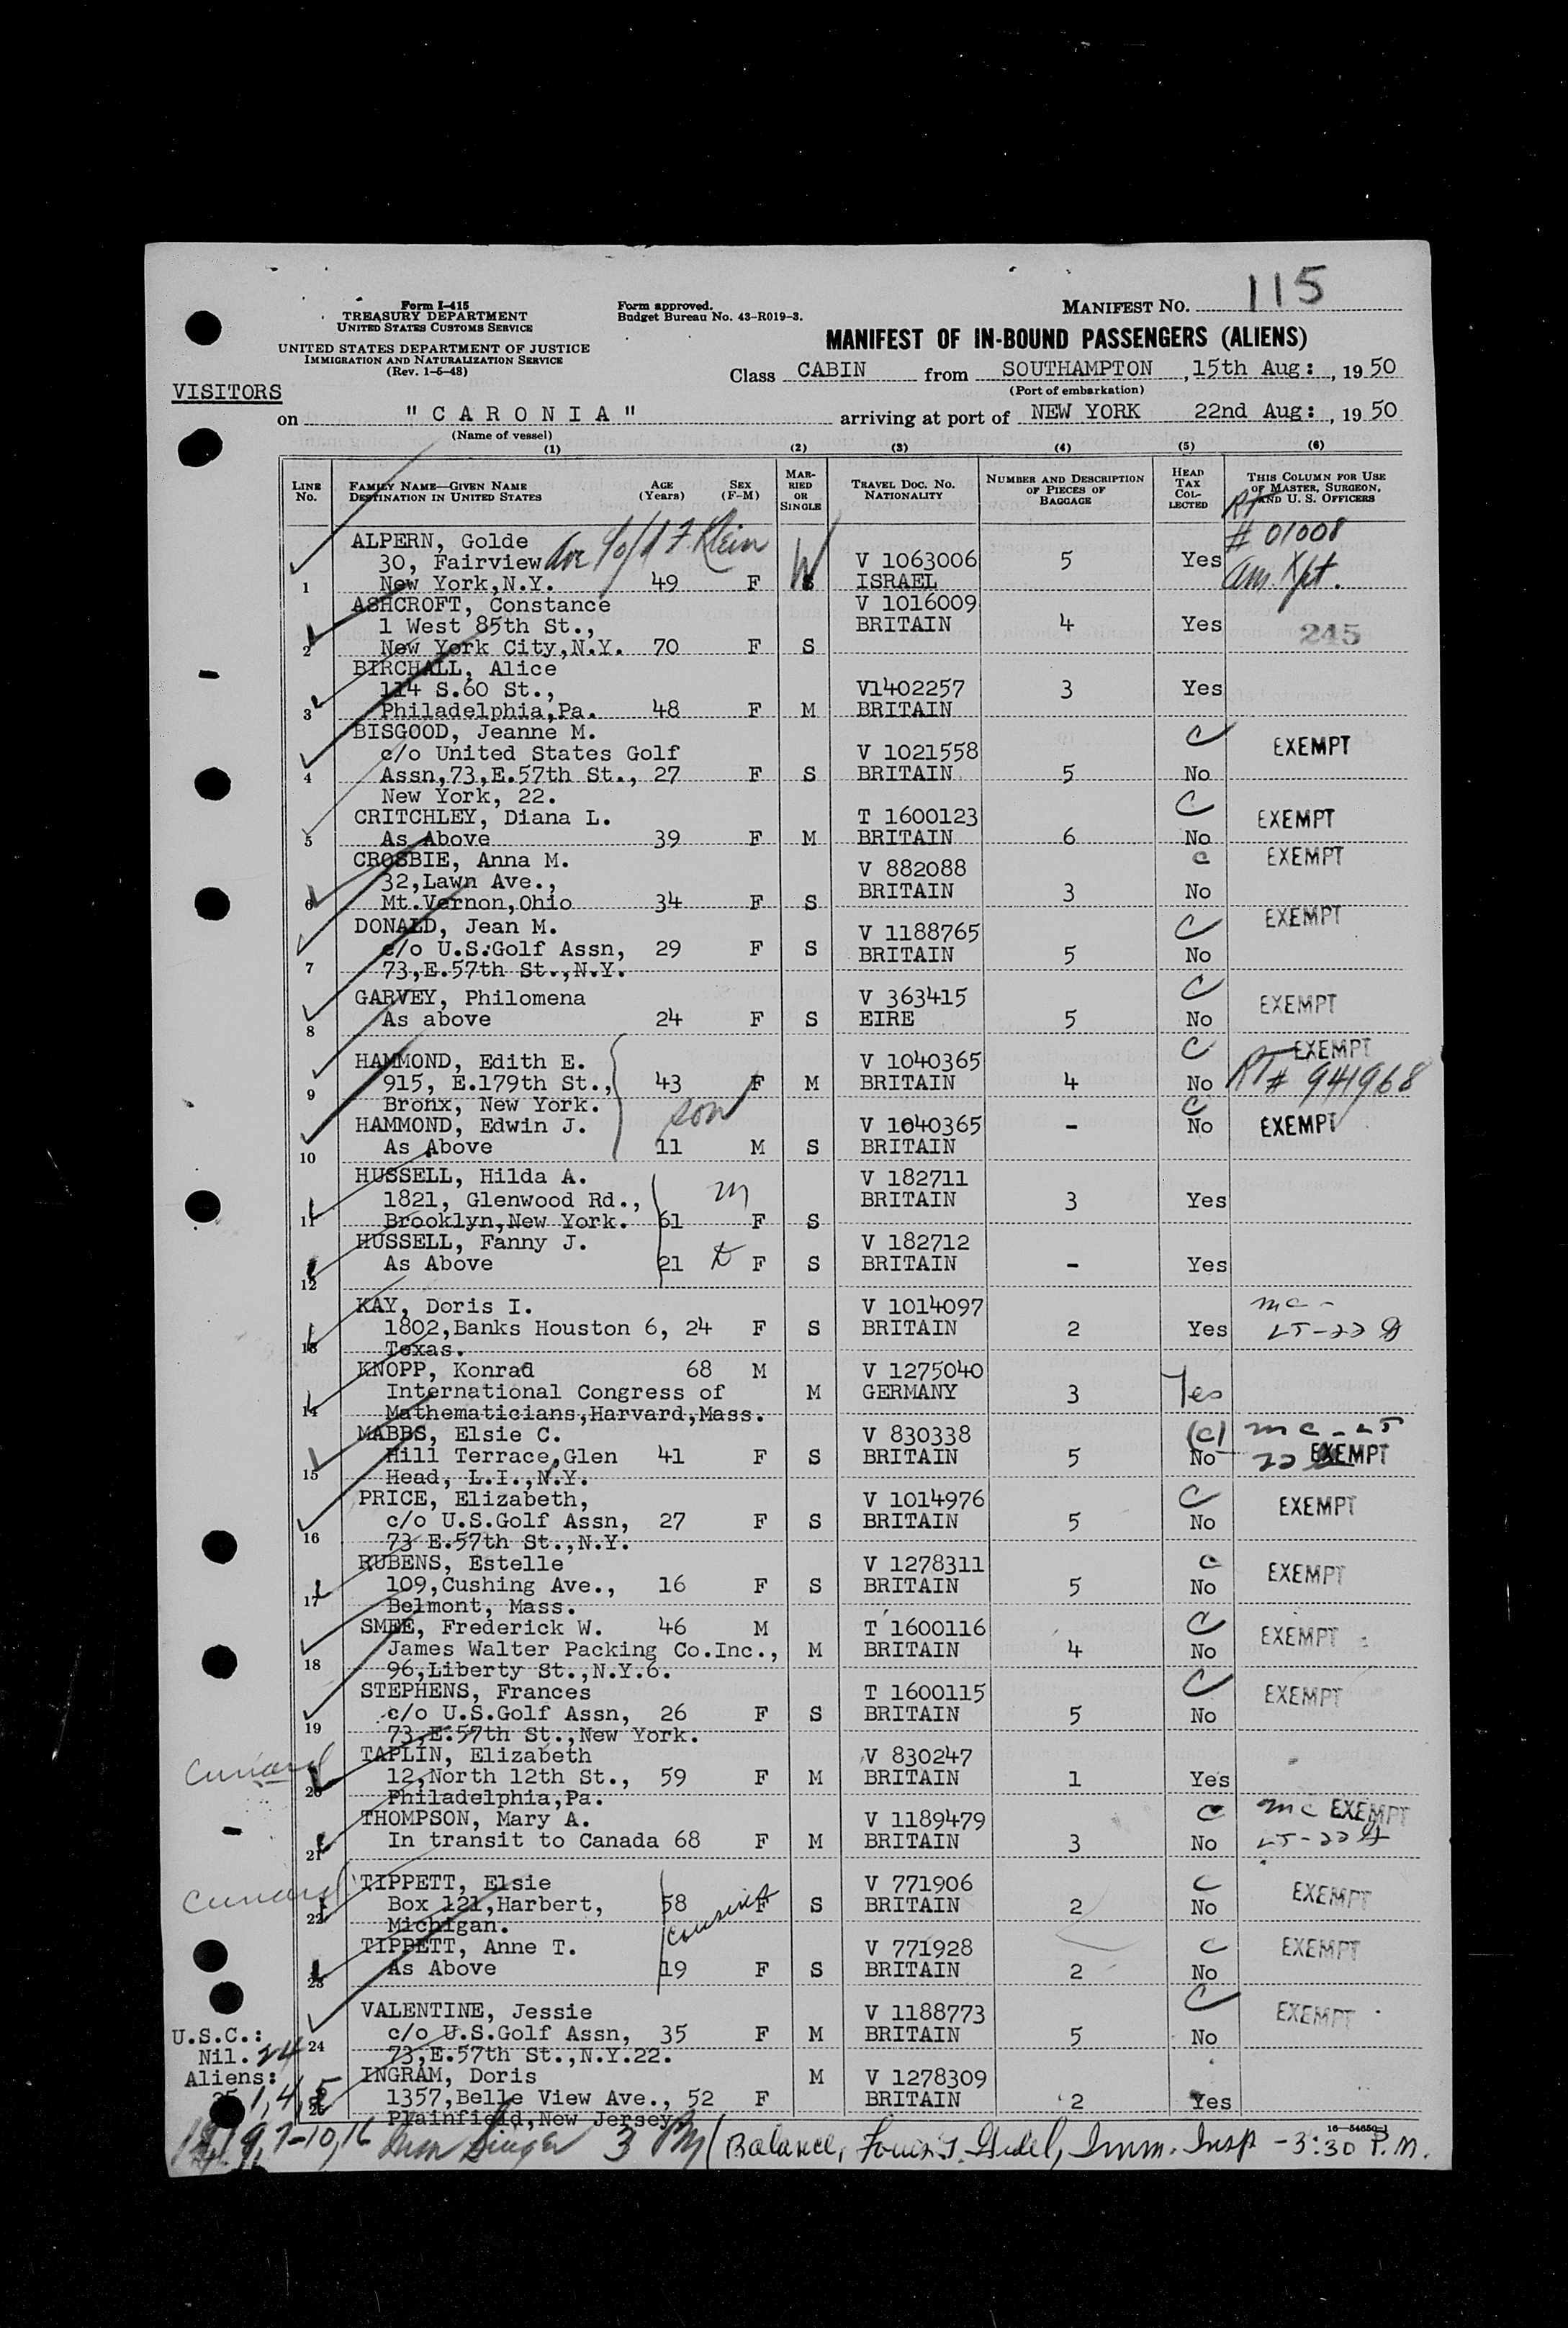 Form I-415
TREASURY DEPARTMENT
UNITED STATES CUSTOMS SERVICE
UNITED STATES DEPARTMENT OF JUSTICE
IMMIGRATION AND NATURALIZATION SERVICE
(Rev. 1-5-48)
Form approved.
Budget Bureau No. 43-R019-3.
MANIFEST NO. 115
MANIFEST OF IN-BOUND PASSENGERS (ALIENS)
VISITORS
Class CABIN from SOUTHAMPTON, 15th Aug:, 1950
(Port of embarkation)
on "CARONIA" arriving at port of NEW YORK 22nd Aug:, 1950
(Name of vessel)
(1) (2) (3) (4) (5) (6)
LINE No. FAMILY NAME—GIVEN NAME DESTINATION IN UNITED STATES AGE (Years) SEX (F-M) MARRIED OR SINGLE TRAVEL DOC. NO. NATIONALITY NUMBER AND DESCRIPTION OF PIECES OF BAGGAGE HEAD TAX COLLECTED THIS COLUMN FOR USE OF MASTER, SURGEON, AND U. S. OFFICERS
RT
ALPERN, Golde # 01008
30, Fairview Ave Klein W V 1063006 5 Yes
1 New York, N.Y. 49 F ISRAEL
ASHCROFT, Constance V 1016009
1 West 85th St., BRITAIN 4 Yes 245
2 New York City, N.Y. 70 F S
BIRCHALL, Alice
114 S.60 St., V1402257 3 Yes
3 Philadelphia, Pa. 48 F M BRITAIN
BISGOOD, Jeanne M. C EXEMPT
c/o United States Golf V 1021558
4 Assn, 73, E.57th St., 27 F S BRITAIN 5 No
New York, 22. C
CRITCHLEY, Diana L. T 1600123 EXEMPT
5 As Above 39 F M BRITAIN 6 No
CROSBIE, Anna M. V 882088 C EXEMPT
32, Lawn Ave., BRITAIN 3 No
6 Mt. Vernon, Ohio 34 F S
DONALD, Jean M. V 1188765 C EXEMPT
c/o U.S. Golf Assn, 29 F S BRITAIN 5 No
7 73, E.57th St., N.Y.
GARVEY, Philomena V 363415 C EXEMPT
8 As above 24 F S EIRE 5 No
HAMMOND, Edith E. V 1040365 C EXEMPT
9 915, E.179th St., 43 F M BRITAIN 4 No RT # 941968
Bronx, New York. son C
HAMMOND, Edwin J. V 1040365 - No EXEMPT
10 As Above 11 M S BRITAIN
HUSSELL, Hilda A. V 182711
1821, Glenwood Rd., m BRITAIN 3 Yes
11 Brooklyn, New York. 61 F S
HUSSELL, Fanny J. V 182712
12 As Above 21 F S BRITAIN - Yes
KAY, Doris I. V 1014097 mc -
13 1802, Banks Houston 6, 24 F S BRITAIN 2 Yes LT-22
Texas.
KNOPP, Konrad 68 M V 1275040
International Congress of M GERMANY 3 Yes
14 Mathematicians, Harvard, Mass.
MABBS, Elsie C. V 830338 (C) mc - LT
Hill Terrace, Glen 41 F S BRITAIN 5 No 22 EXEMPT
15 Head, L.I., N.Y.
PRICE, Elizabeth, V 1014976 C EXEMPT
c/o U.S. Golf Assn, 27 F S BRITAIN 5 No
16 73 E.57th St., N.Y.
RUBENS, Estelle V 1278311 C EXEMPT
109, Cushing Ave., 16 F S BRITAIN 5 No
17 Belmont, Mass.
SMEE, Frederick W. 46 M T 1600116 C EXEMPT
James Walter Packing Co. Inc., M BRITAIN 4 No
18 96, Liberty St., N.Y. 6.
STEPHENS, Frances T 1600115 C EXEMPT
c/o U.S. Golf Assn, 26 F S BRITAIN 5 No
19 73, E.57th St., New York.
Cunard TAPLIN, Elizabeth V 830247
20 12, North 12th St., 59 F M BRITAIN 1 Yes
Philadelphia, Pa.
THOMPSON, Mary A. V 1189479 C mc EXEMPT
21 In transit to Canada 68 F M BRITAIN 3 No LT-22
Cunard TIPPETT, Elsie V 771906 C EXEMPT
22 Box 121, Harbert, 58 F S BRITAIN 2 No
Michigan. cousins
TIPPETT, Anne T. V 771928 C EXEMPT
23 As Above 19 F S BRITAIN 2 No
VALENTINE, Jessie V 1188773 C EXEMPT
c/o U.S. Golf Assn, 35 F M BRITAIN 5 No
24 73, E.57th St., N.Y. 22.
INGRAM, Doris M V 1278309
25 1357, Belle View Ave., 52 F BRITAIN 2 Yes
Plainfield, New Jersey.
U.S.C.:
Nil. 24
Aliens:
25 1, 4, 5
7-10, 16 3 PM (Balance, Imm. Insp - 3:30 P.M.
16-54650-1